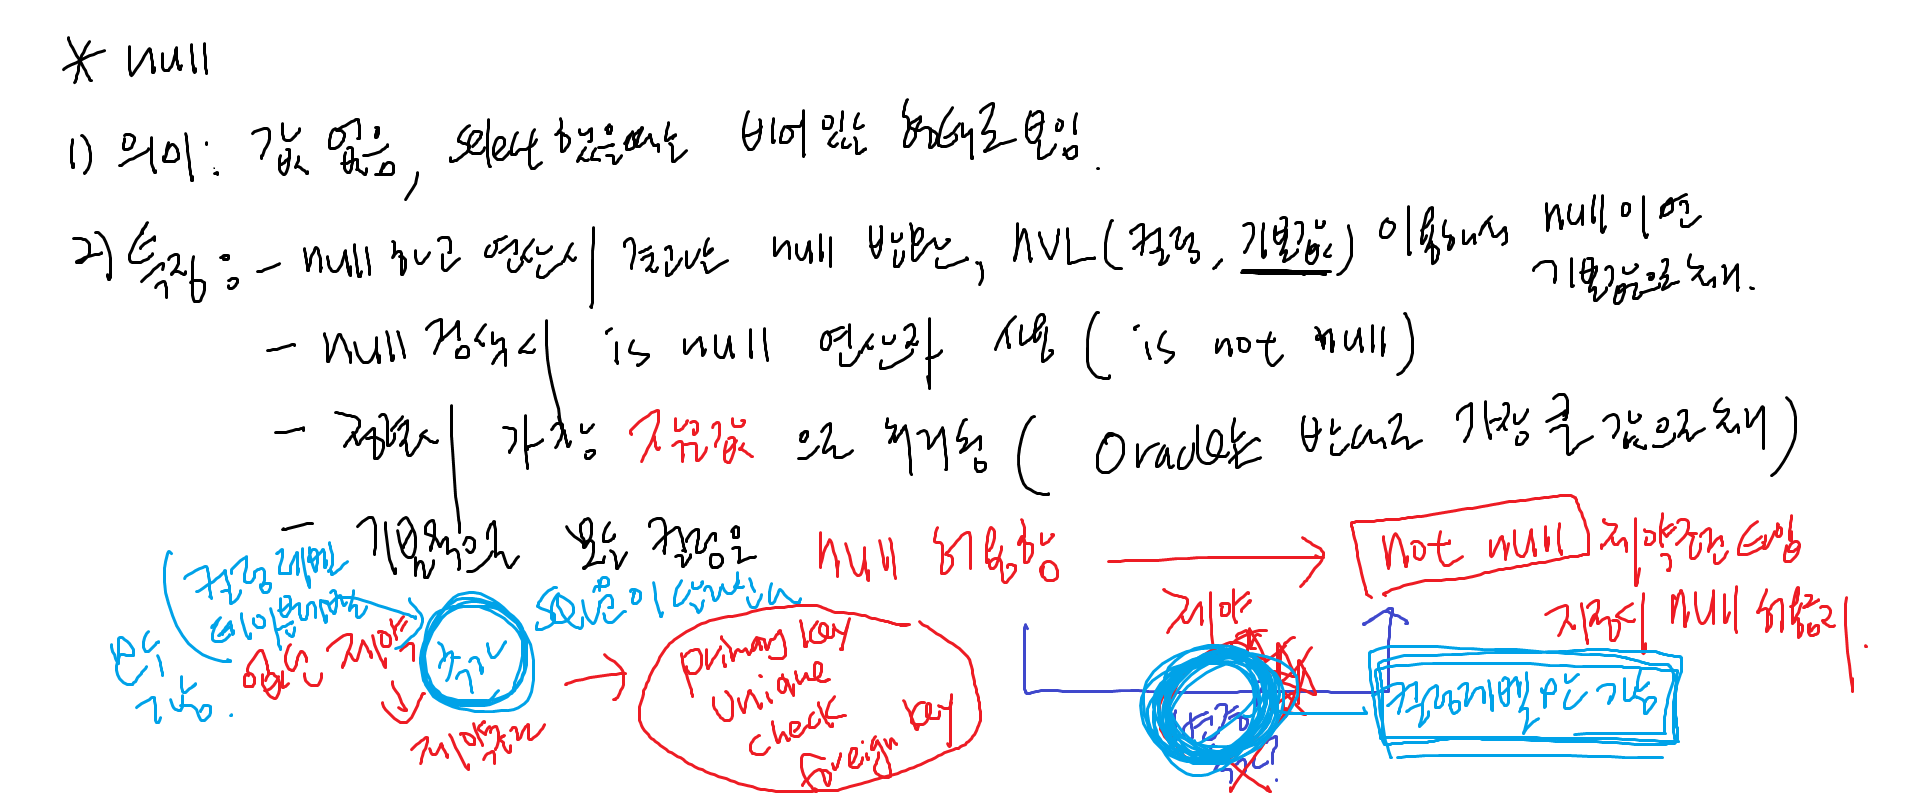 * null
1) 의미: 값 없음, select 했을때는 비어있는 형태로 보임.
2) 특징 : - null 하고 연산시 결과는 null 반환, NVL(컬럼, 기본값) 이용해서 null이면 기본값으로 처리.
- null 검색시 is null 연산자 사용 ( is not null )
- 정렬시 가장 작은값 으로 처리됨 ( Oracle는 반대로 가장 큰 값으로 처리 )
- 기본적으로 모든 컬럼은 null 허용함 → not null 제약조건 타입
지정시 null 허용금지.
컬럼레벨
테이블레벨
모두
가능.
없는 제약
추가
제약조건
primary key
unique
check
foreign key
제약
변경
컬럼레벨만 가능